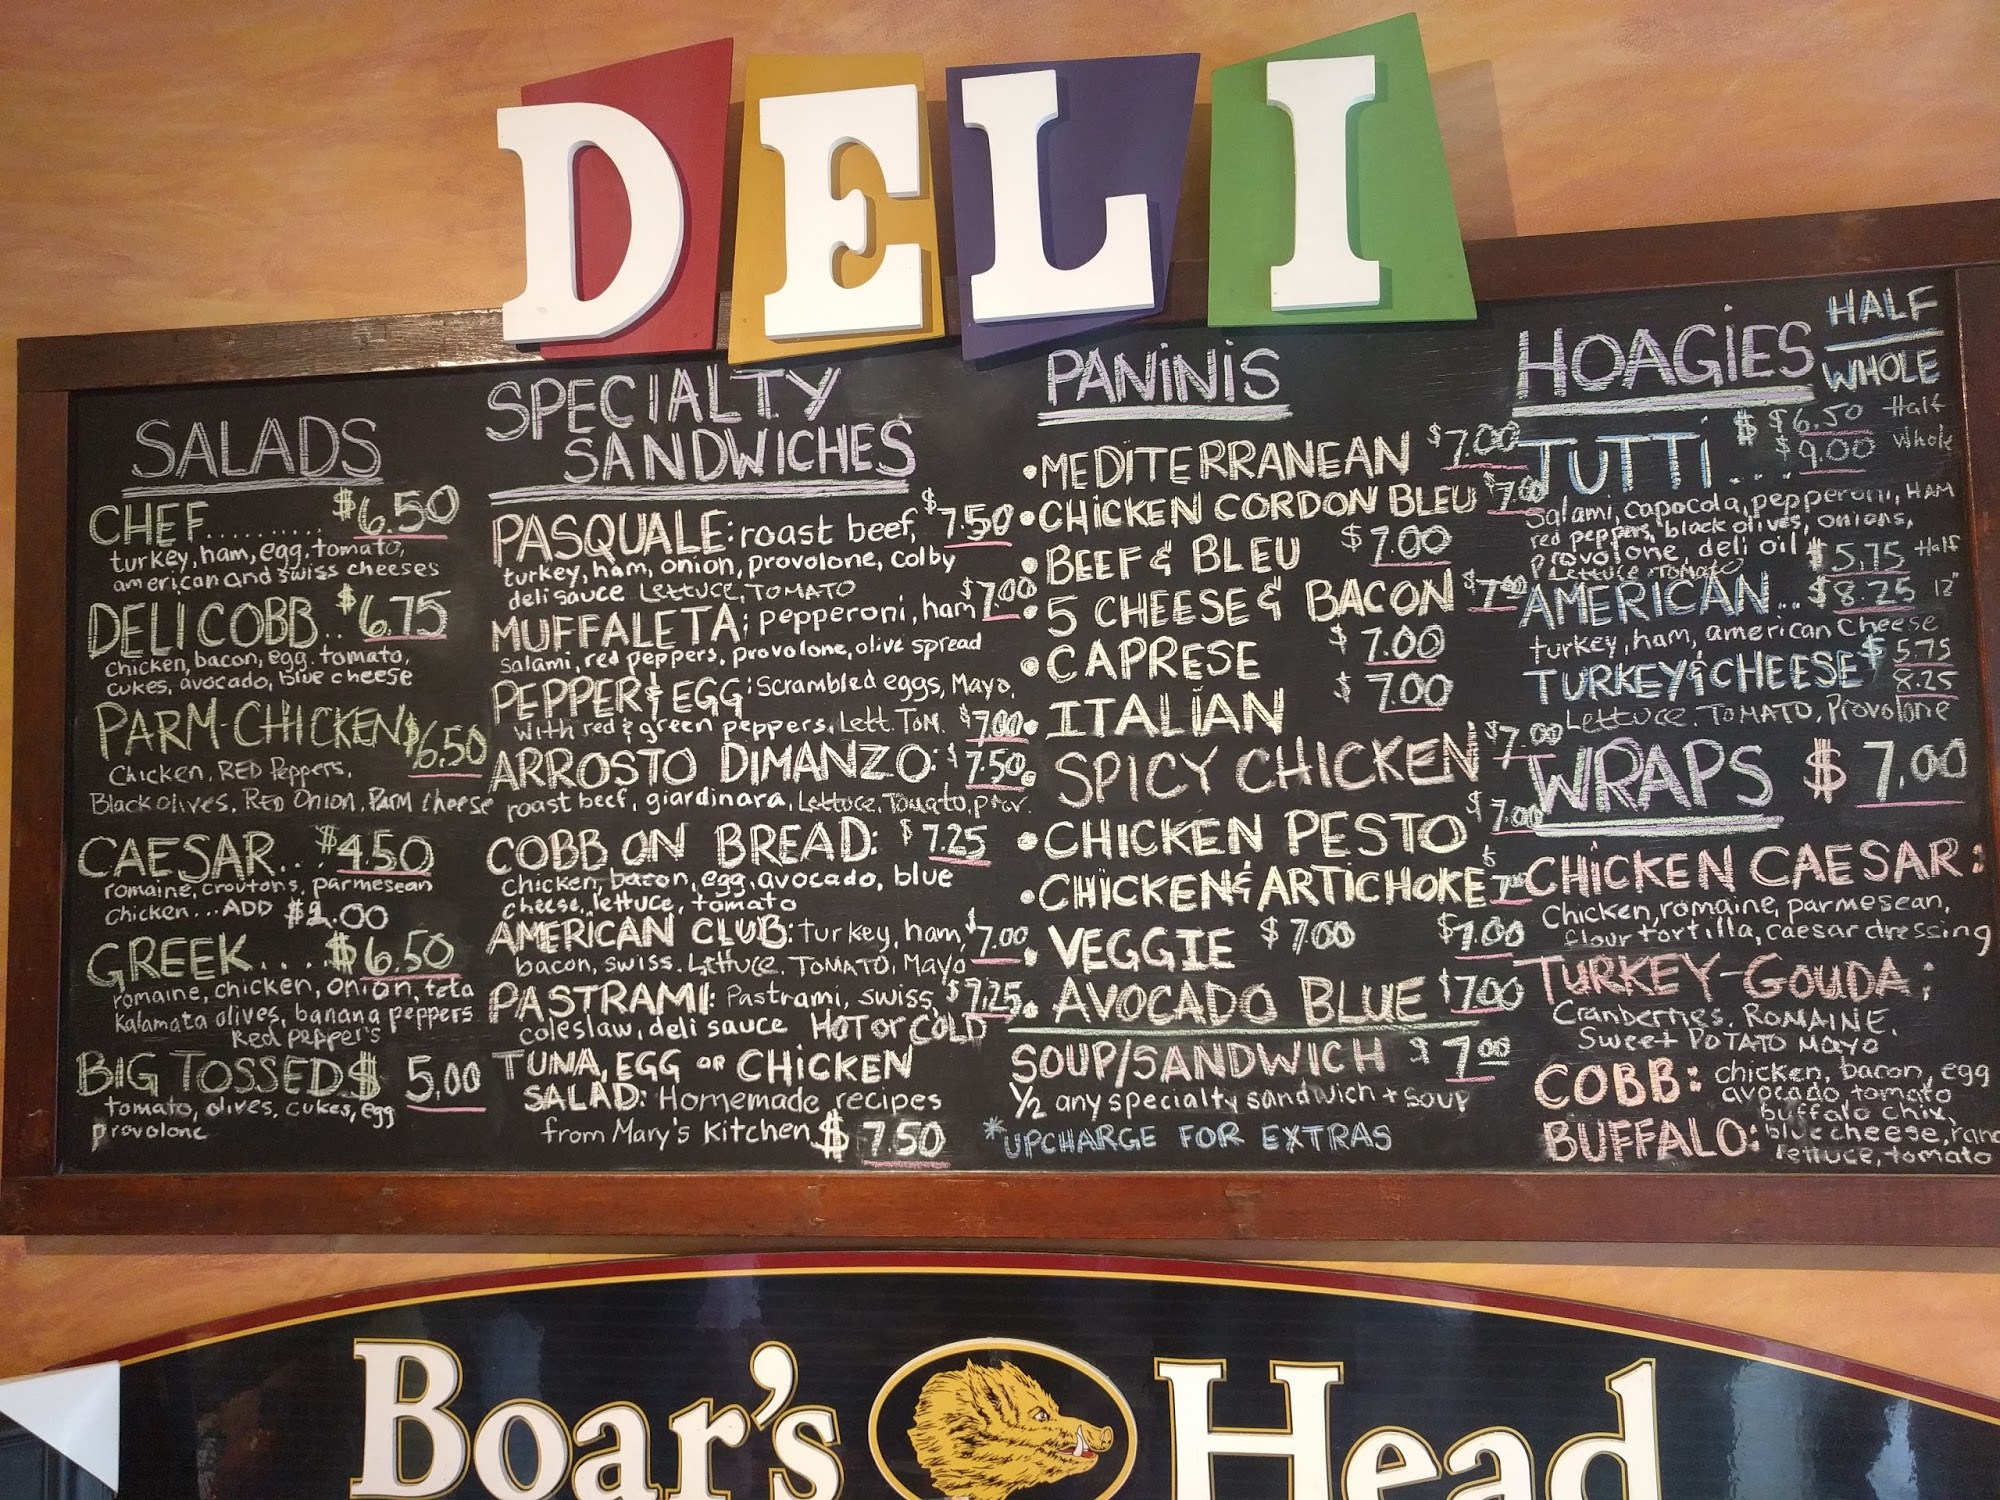 DELI
SALADS
CHEF......... $6.50
turkey, ham, egg, tomato,
american and swiss cheeses
DELI COBB.. $6.75
chicken, bacon, egg, tomato,
cukes, avocado, blue cheese
PARM-CHICKEN $6.50
Chicken, RED Peppers,
Black olives, RED Onion, Parm Cheese
CAESAR... $4.50
romaine, croutons, parmesean
Chicken...ADD
GREEK.... $6.50
romaine, chicken, onion, feta
kalamata olives, banana peppers
Red pepper's
BIG TOSSED $ 5.00
tomato, olives, cukes, egg
provolone
SPECIALTY
SANDWICHES
PASQUALE: roast beef, $7.50
turkey, ham, onion, provolone, colby
deli sauce Lettuce, TOMATO
MUFFALETA; pepperoni, ham $7.00
salami, red peppers, provolone, olive spread
PEPPER & EGG: Scrambled eggs, Mayo,
with red & green peppers, Lett. TOM. $7.00
ARROSTO DIMANZO: $7.50
roast beef, giardinara, Lettuce, Tomato, prov.
COBB ON BREAD: $7.25
chicken, bacon, egg, avocado, blue
cheese, lettuce, tomato
AMERICAN CLUB: turkey, ham, $7.00
bacon, swiss. Lettuce, TOMATO, Mayo
PASTRAMI: Pastrami, swiss, $7.25
coleslaw, deli sauce HOT or COLD
TUNA, EGG OR CHICKEN
SALAD: Homemade recipes
from Mary's Kitchen $ 7.50
PANINIS
• MEDITERRANEAN $7.00
• CHICKEN CORDON BLEU $7.00
• BEEF & BLEU $7.00
• 5 CHEESE & BACON $7.00
• CAPRESE $7.00
• ITALIAN $7.00
• SPICY CHICKEN $7.00
• CHICKEN PESTO $7.00
• CHICKEN & ARTICHOKE
• VEGGIE $7.00 $7.00
• AVOCADO BLUE $7.00
SOUP/SANDWICH $7.00
1/2 any specialty sandwich + soup
*UPCHARGE FOR EXTRAS
HOAGIES HALF
WHOLE
TUTTI... $ $6.50 Half
$9.00 Whole
Salami, capocola, pepperoni, HAM
red peppers, black olives, onions,
provolone, deli oil
Lettuce, TOMATO $5.75 Half
AMERICAN.. $8.25 12"
turkey, ham, american cheese
TURKEY & CHEESE $5.75
8.25
Lettuce, TOMATO, Provolone
WRAPS $7.00
CHICKEN CAESAR:
Chicken, romaine, parmesean,
flour tortilla, caesar dressing
TURKEY-GOUDA:
Cranberries, ROMAINE,
Sweet POTATO MAYO
COBB: chicken, bacon, egg
avocado, tomato
BUFFALO: buffalo chix,
blue cheese, ranc
lettuce, tomato
Boar's Head